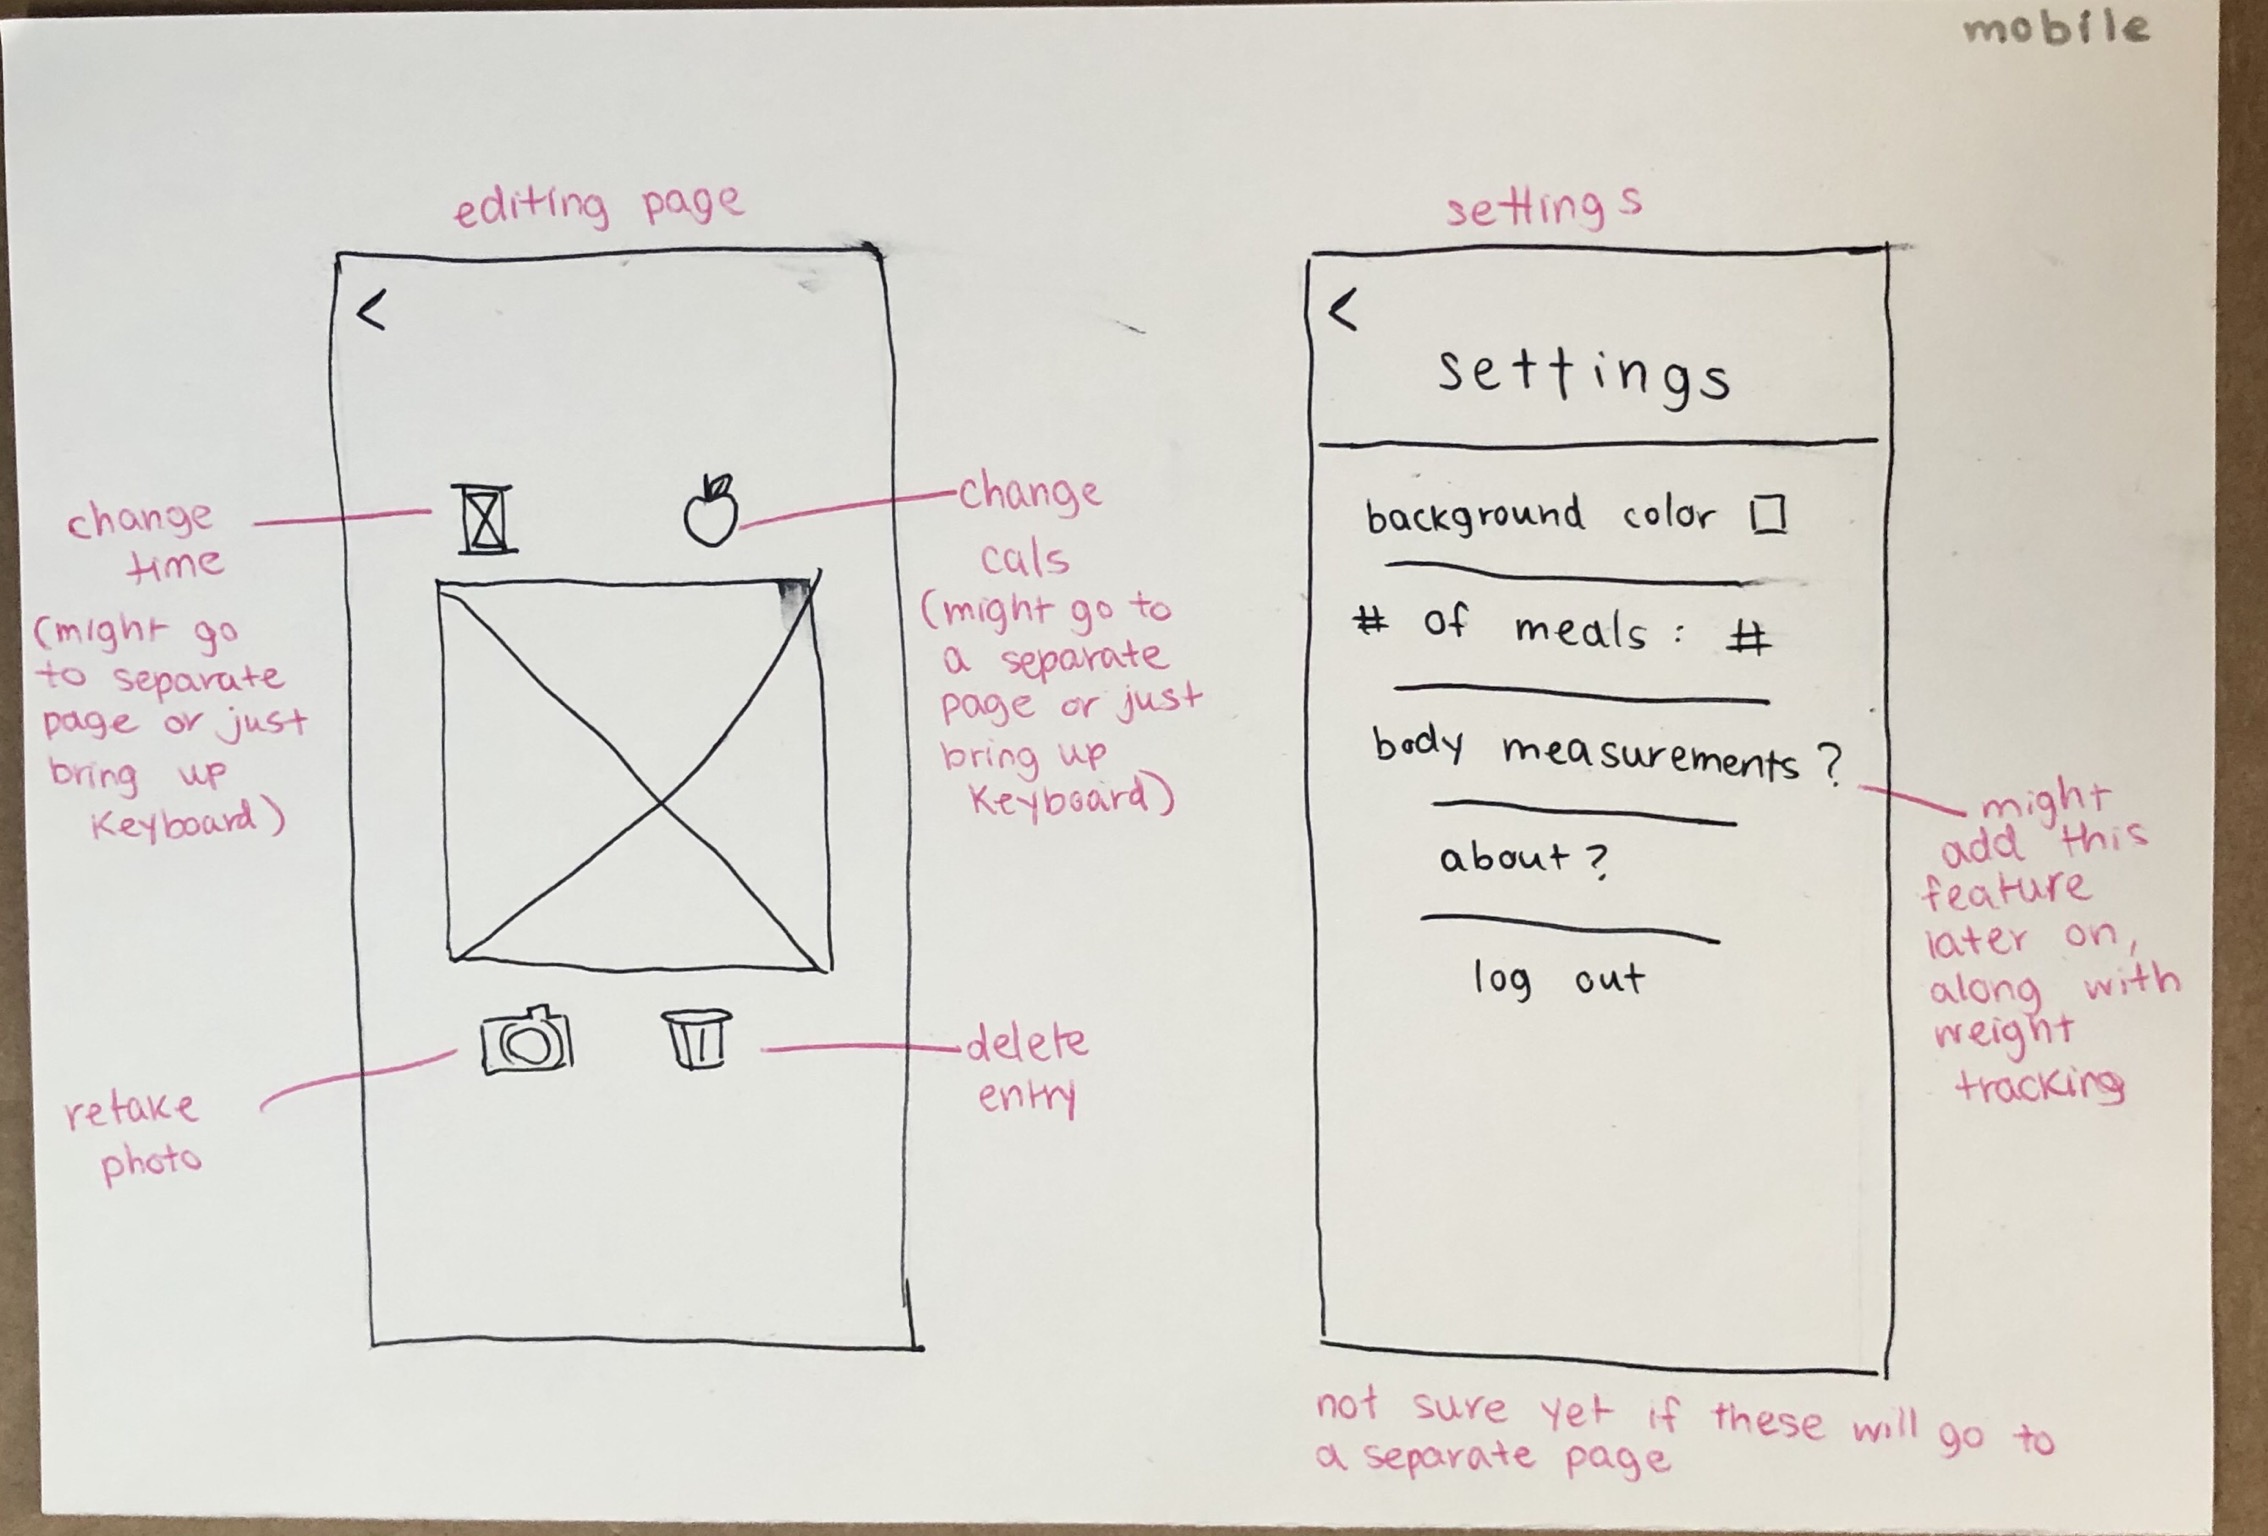 mobile
editing page
<
change
time
(might go
to separate
page or just
bring up
keyboard)
change
cals
(might go to
a separate
page or just
bring up
keyboard)
retake
photo
delete
entry
settings
<
settings
background color
# of meals : #
body measurements ?
about ?
log out
might
add this
feature
later on,
along with
weight
tracking
not sure yet if these will go to
a separate page